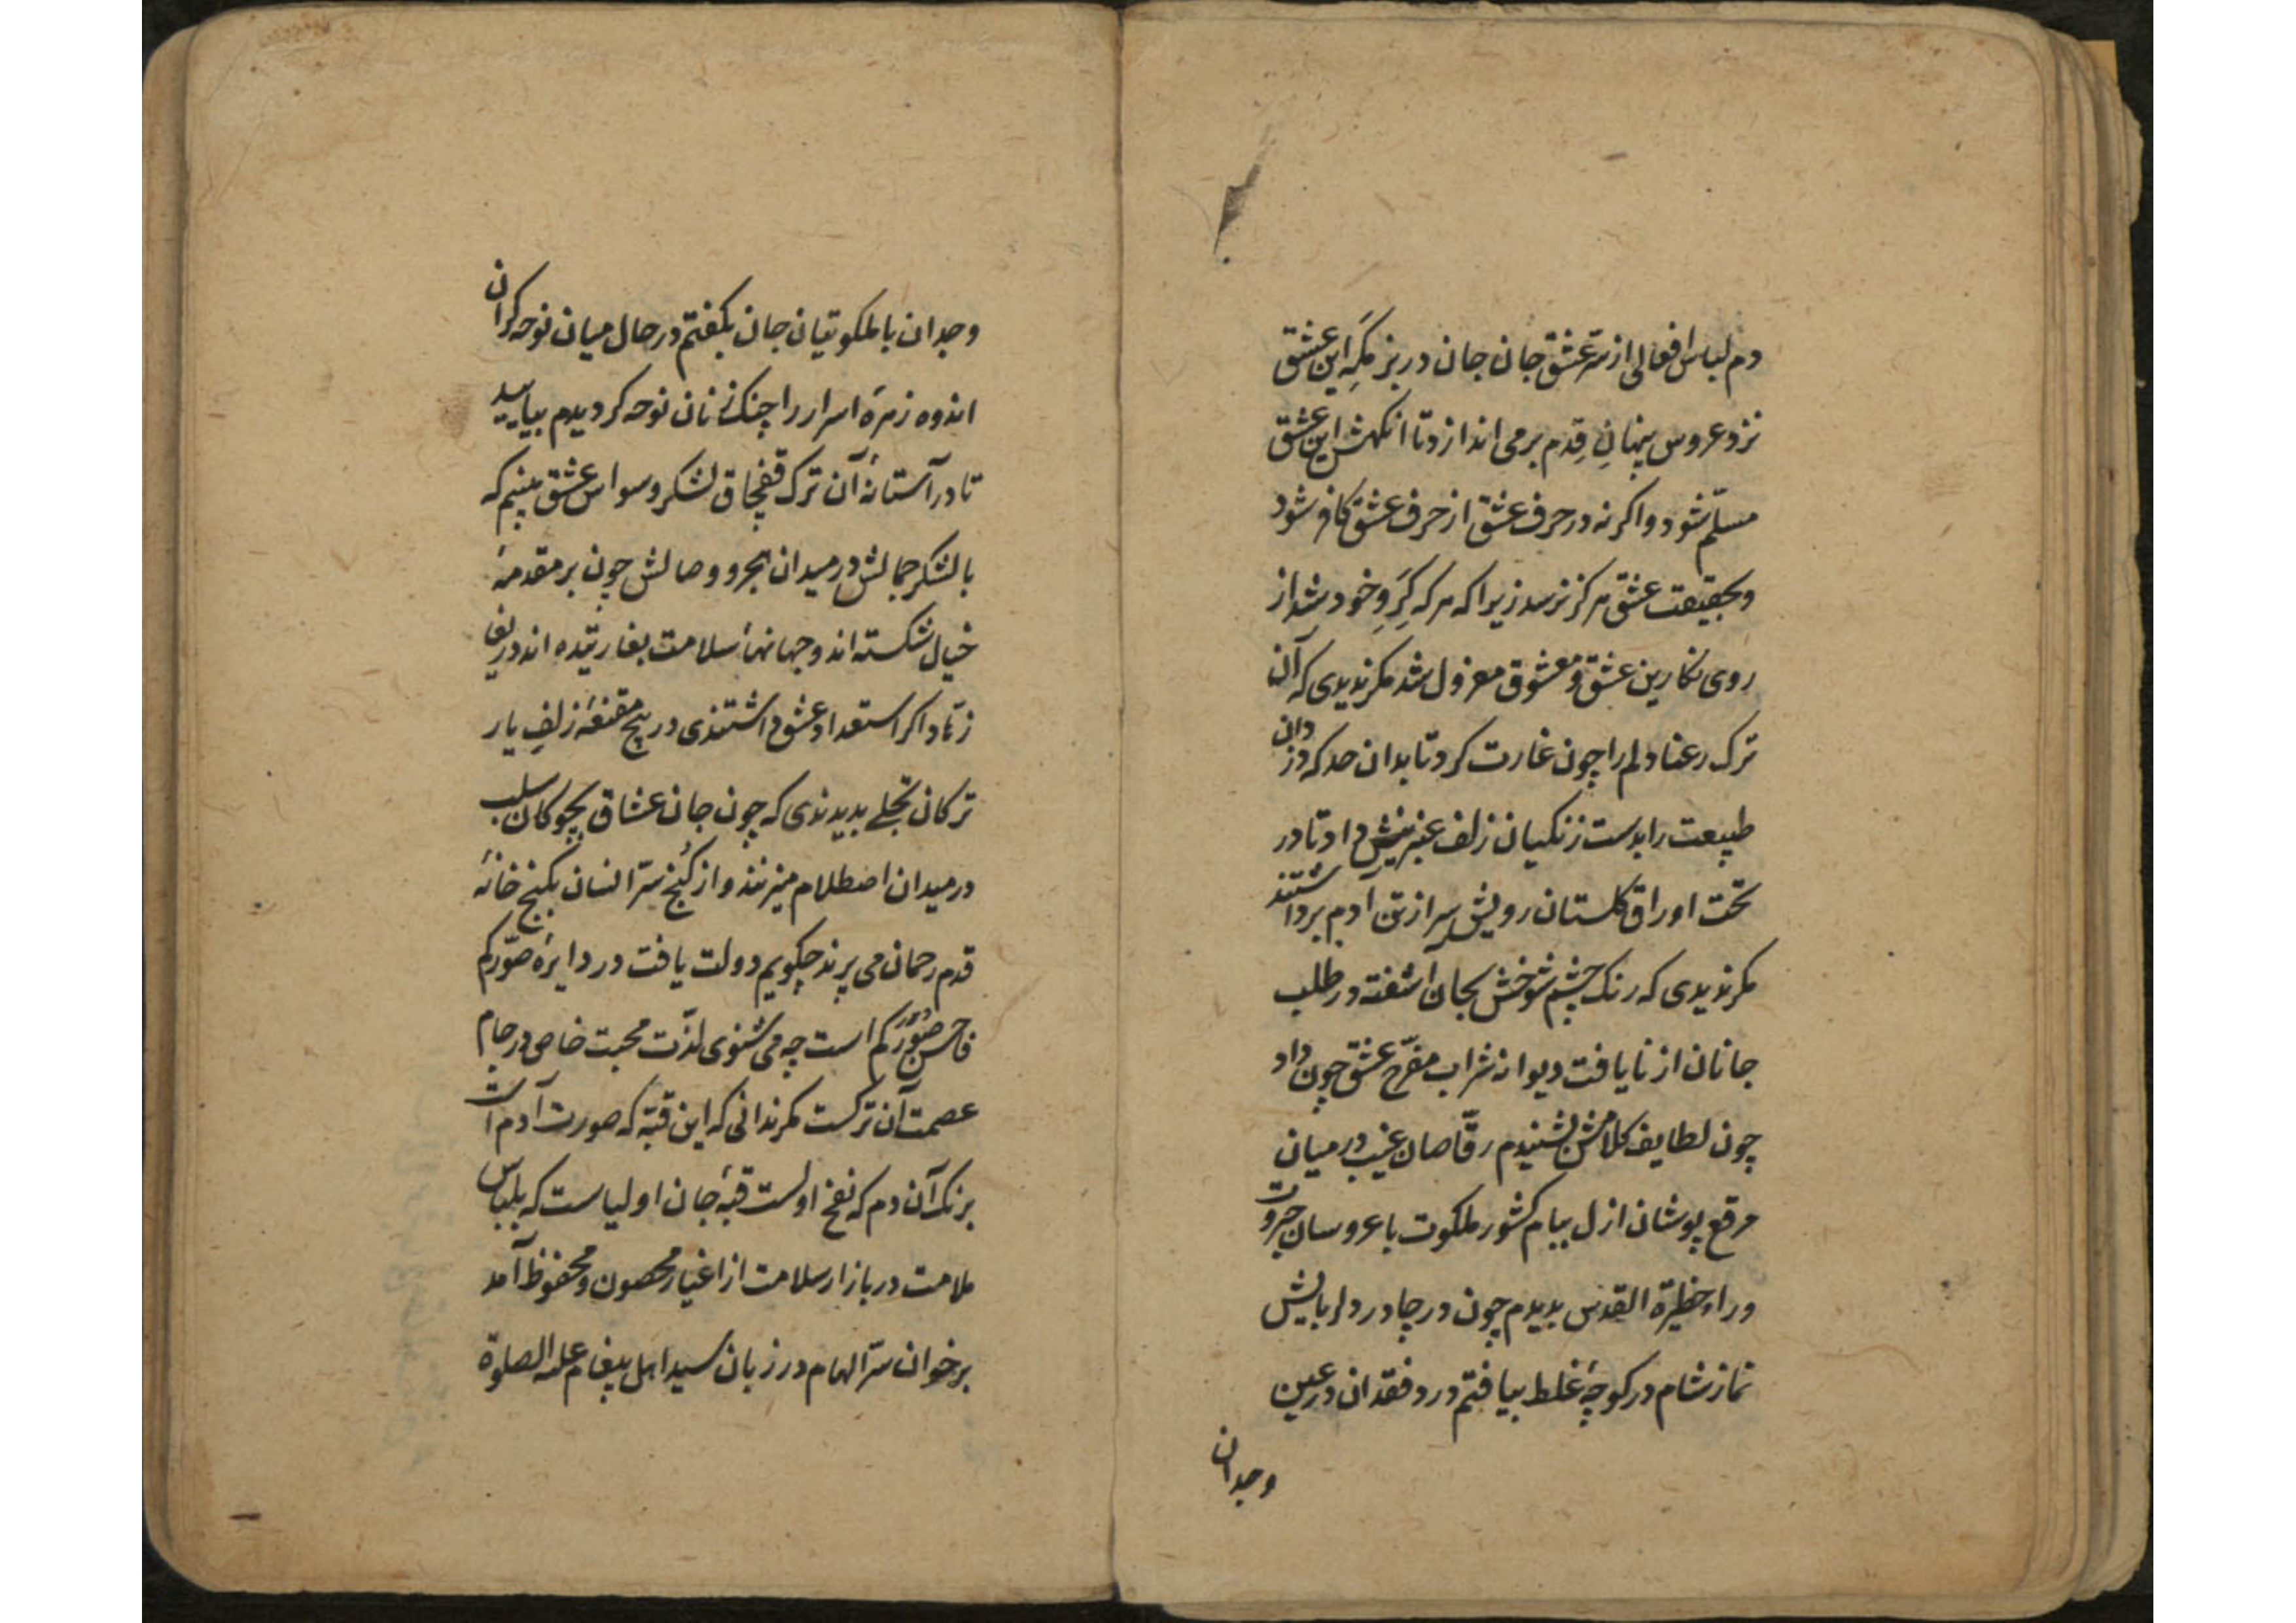 دم لباس افعالی از سرّ عشق جان جان در بزمگهِ این عشق
نزد عروس پنهانِ قِدم برمی اندازد تا انکهش این عشق
مسلّم شود و اکر نه در حرف عشق از حرف عشق کافر شود
و بحقیقت عشق هرکز نرسد زیرا که هر که کِرَوِ خود شد از
روی نکارین عشق و معشوق معزول شد مکر ندیدی که آن
ترک رعنا دلم را چون غارت کرد تا بدان حد که دزدان
طبیعت را بدست زنکیان زلف عنبرینش داد تا در
تحت اوراق کلستان رویش سر از تن آدم برداشتند
مکر ندیدی که رنک چشم شوخش بجان آشفته در طلب
جانان از نایافت دیوانه شراب مفرّح عشق چون داد
چون لطایف کلامش بشنیدم رقّاصان غیب در میان
مرقع پوشان ازل ببام کشور ملکوت با عروسان جبروت
وراء حظیرة القدس بدیدم چون در چادر دلربایش
نماز شام در کوچهٔ غلط بیافتم درد فقدان در عین
وجدان
وجدان با ملکوتیان جان بکفتم در حال میان نوحه کران
اندوه زمرهٔ اسرار را چنک زنان نوحه کر دیدم بیایید
تا در آستانهٔ آن ترک قفجاق لشکر وسواس عشق ببینیم که
با لشکر جمالش در میدان هجر و وصالش چون بر مقدمهٔ
خیال شکسته اند و جهانهاٴ سلامت بغارتیده اند دریغا
زهّاد اکر استعداد عشق داشتندی در پیچ مقنعهٔ زلفِ یار
ترکان تجلے بدیدندی که چون جان عشاق بچوکان سلب
در میدان اصطلام میزنند و از کُنج سرّ انسان بکنج خانهٔ
قدم رحمان می پرند چکویم دولت یافت در دایرهٔ صوّرکم
فاحسن صورکم است چه می شنوی لذّت محبت خاص در جام
عصمت آن ترکست مکر ندانی که این قبّه که صورت آدم است
برنک آن دم که نفخ اولست قبّهٔ جان اولیاست که بلباس
ملامت در بازار سلامت از اغیار محصون و محفوظ آمد
برخوان سرّ الهام در زبان سید اهل پیغام علیه الصلوة